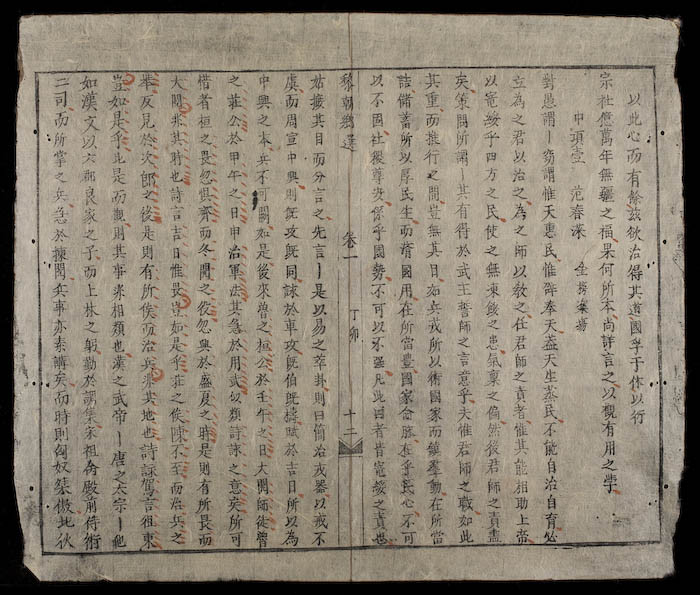 以此心而有餘茲欲治得其道國孚于休以行
宗社億萬年無疆之福果何所本尚詳言之以觀有用之學
中項壹 范春深 全場
對愚謂丨竊謂惟天惠民惟辟奉天蓋天生蒸民不能自治自育必
立為之君以治之為之師以教之任君師之責者惟其能相助上帝
以寵綏乎四方之民使之無凍餒之患氣稟之偏然後君師之責盡
矣策問所謂丨其有得於武王誓師之言意乎夫惟君師之職如此
其重而推行之間豈無其目如兵戎所以衛國家而鎮羣動在所當
詰儲蓄所以厚民生而濟國用在所當豐國家命脉在乎民心不可
以不固社稷尊安係乎國勢不可以不强凡此四者皆寵綏之責也
黎朝鄉選 卷一 丁卯 十二
姑撮其目而分言之先言丨是以易之萃卦則曰脩治戎器以戒不
虞而周宣中興則既攻既同詠於車攻既伯既禱賦於吉日所以為
中興之本兵不可闕如是後來魯之桓公於壬午之日大閱師徒魯
之莊公於甲午之日申治軍法其急於用武似類詩詠之意矣所可
惜者桓之畏忽與齊而冬閱之役忽興於盛夏之時是則有所畏而
大閱非其時也詩言吉日惟畏豈如是乎莊之俟陳不至而治兵之
舉反見於次郎之後是則有所俟而治兵非其地也詩詠駕言徂東
豈如是乎由是而觀則其事豈相類也漢之武帝丨唐之太宗丨他
如漢文以六郡良家之子而上林之躬勤於講集宋祖為殿前侍衛
二司而所掌之兵急於揀閱兵事亦素講矣而時則匈奴桀傲北狄